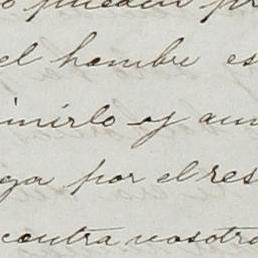 o pueden pr
el hombre es
inirlo oy aun
ga por el res
contra vosotro